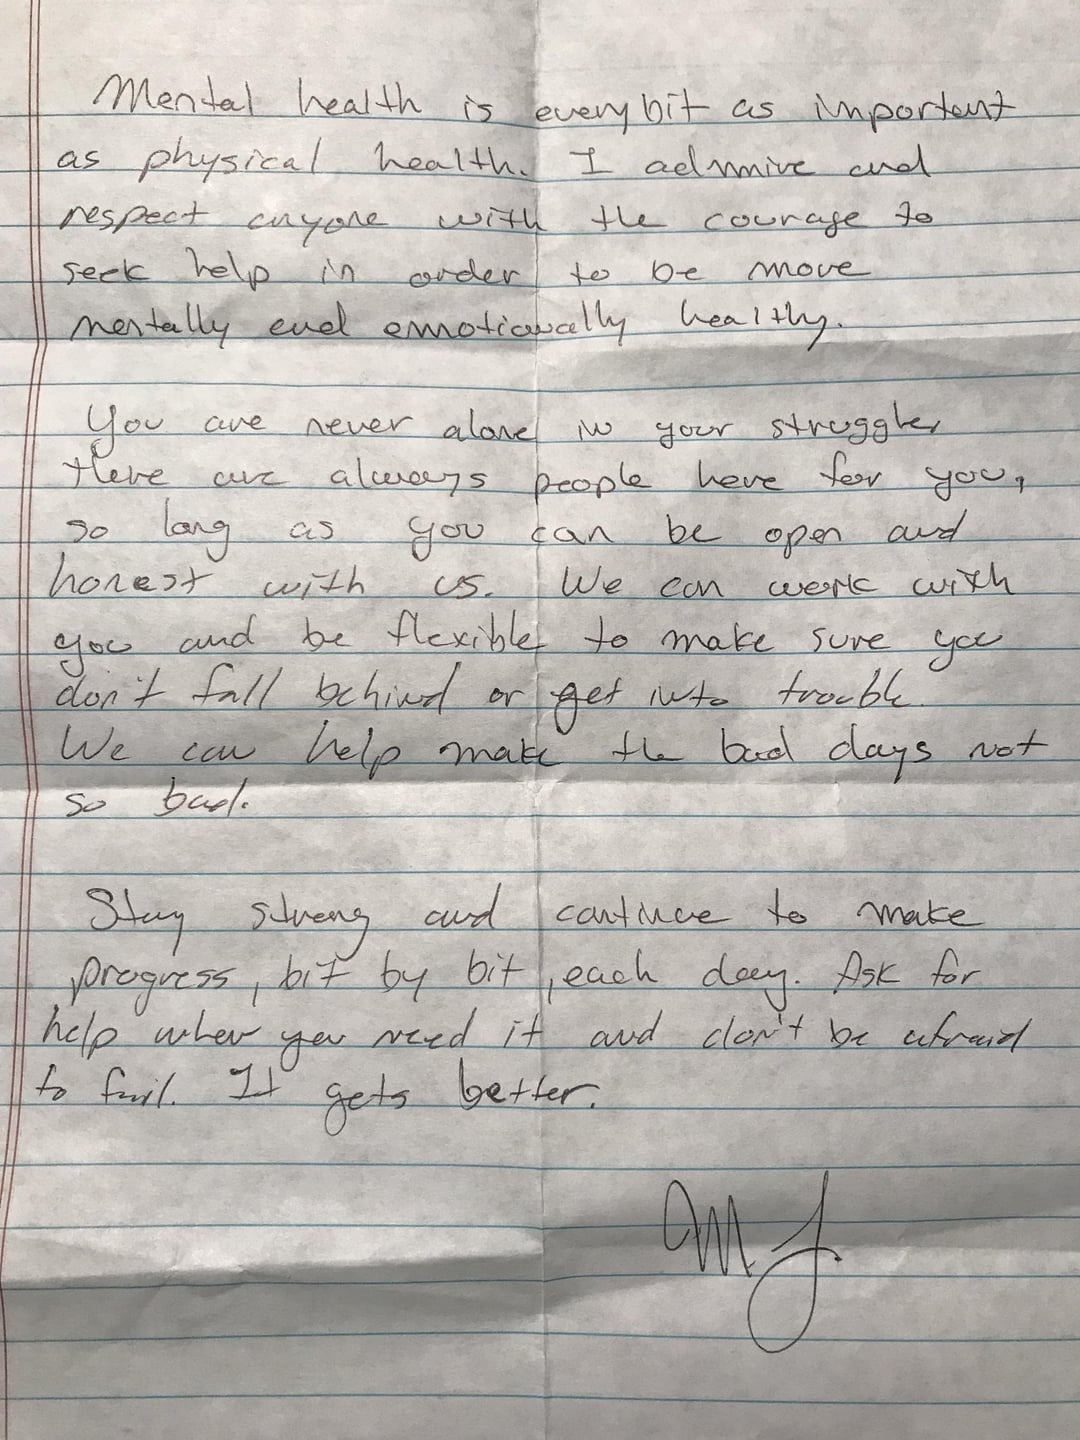 Mental health is every bit as important
as physical health. I admire and
respect anyone with the courage to
seek help in order to be more
mentally and emotionally healthy.
You are never alone in your struggle,
there are always people here for you,
so long as you can be open and
honest with us. We can work with
you and be flexible to make sure you
don't fall behind or get into trouble.
We can help make the bad days not
so bad.
Stay strong and continue to make
progress, bit by bit, each day. Ask for
help when you need it and don't be afraid
to fail. It gets better.